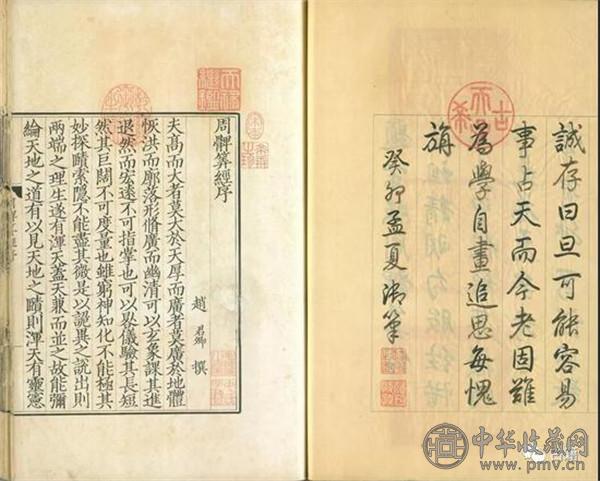 誠存曰旦可能容易
事占天而今老固難
為學自畫追思每愧
旃
癸卯孟夏御筆
古稀天子
周髀筭經序
趙 君卿 撰
夫髙而大者莫大於天厚而廣者莫廣於地體
恢洪而廓落形脩廣而幽清可以玄象課其進
退然而宏遠不可指掌也可以晷儀驗其長短
然其巨闊不可度量也雖窮神知化不能極其
妙探賾索隱不能盡其微是以詭異之說出則
兩端之理生遂有渾天蓋天兼而並之故能彌
綸天地之道有以見天地之賾則渾天有靈憲
天祿繼鑑
中华收藏网
www.pmv.cn